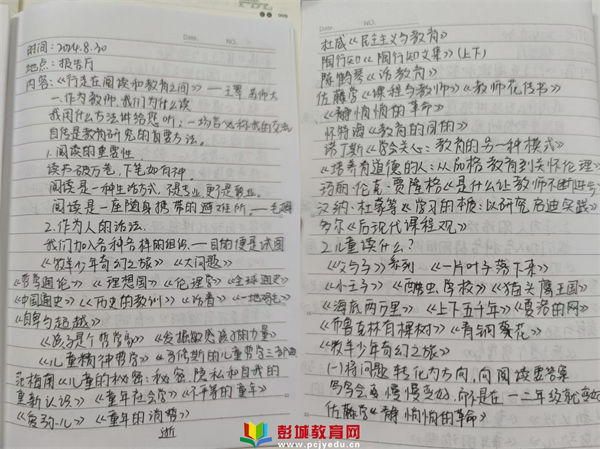 时间：2024.8.30
地点：报告厅
内容：《行走在阅读和教育之间》——
一.作为教师，我们为什么读
我用什么方法讲给您听，一场名
自传是教育研究的重要方法。
1.阅读的重要性
读书破万卷，下笔如有神。
阅读是一种生活方式，不是专业，更是事业。
阅读是一座随身携带的避难所。——毛姆
2.作为人的活法
我们加入各种各样的组织——目的便是
《牧羊少年奇幻之旅》《大问题》
《哲学通论》《理想国》《伦理学》《全球通史》
《中国通史》《历史的教训》《活着》《一地鸡毛》
《自卑与超越》
《孩子是个哲学家》《发掘敏感孩子的力量》
《儿童精神哲学》《马修斯的儿童哲学三部曲
范梅南《儿童的秘密：秘密、隐私和自我的
重新认识》《童年社会学》《不平等的童年》
《窗边
《童年的消逝》
逝
Date. NO.
杜威《民主主义与教育》
陶行知《陶行知文集》（上下）
陈鹤琴《活教育》
佐藤学《课程与教师》《教师花传书》
《静悄悄的革命》
怀特海《教育的目的》
诺丁斯《学会关心：教育的另一种模式》
《培养有道德的人：从品格教育到关怀伦理》
玛丽·伦克·贾隆格《是什么让教师不断进步》
汉纳·杜蒙等《学习的本质：以研究启迪实践》
多尔《后现代课程观》
2.儿童读什么？
系列 《一片叶子落下来》
《小王子》《魔法学校》《猫头鹰王国》
《海底两万里》《上下五千年》《夏洛的网》
《布鲁克林有棵树》《青铜葵花》
《牧羊少年奇幻之旅》
(一)将问题转化为方向，向阅读要答案
慢慢变好，而不是在一二年级就
佐藤学《静悄悄的革命》
彭城教育网
www.pcjyedu.cn